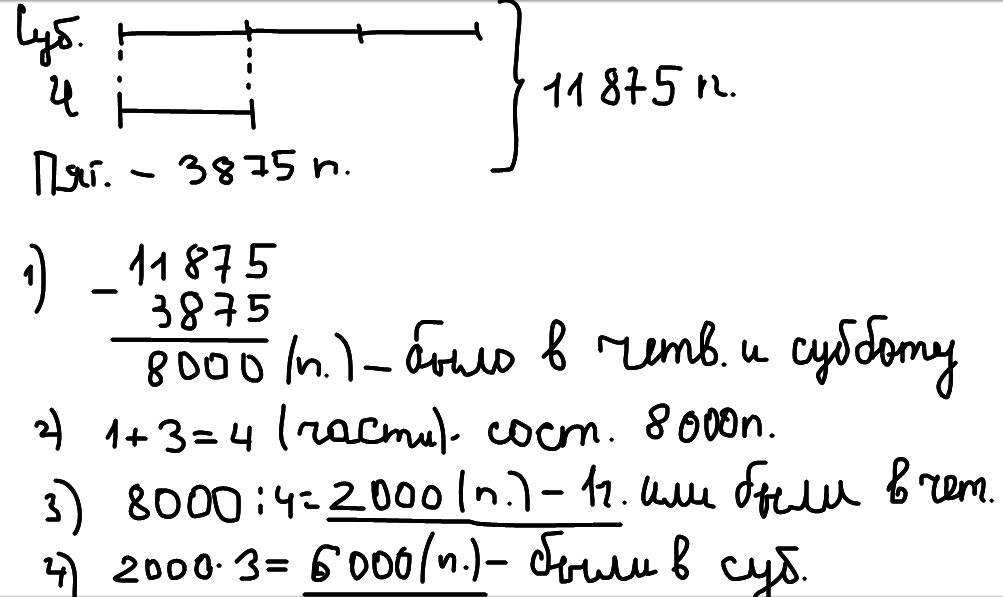 Суб.
Ч
11875 п.
Пят. – 3875 п.
1) – 11875
3875
8000 (п.) – было в четв. и субботу
2) 1+3=4 (части). сост. 8000п.
3) 8000:4=2000(п.) – 1ч. или были в чет.
4) 2000·3=6000(п.) – были в суб.